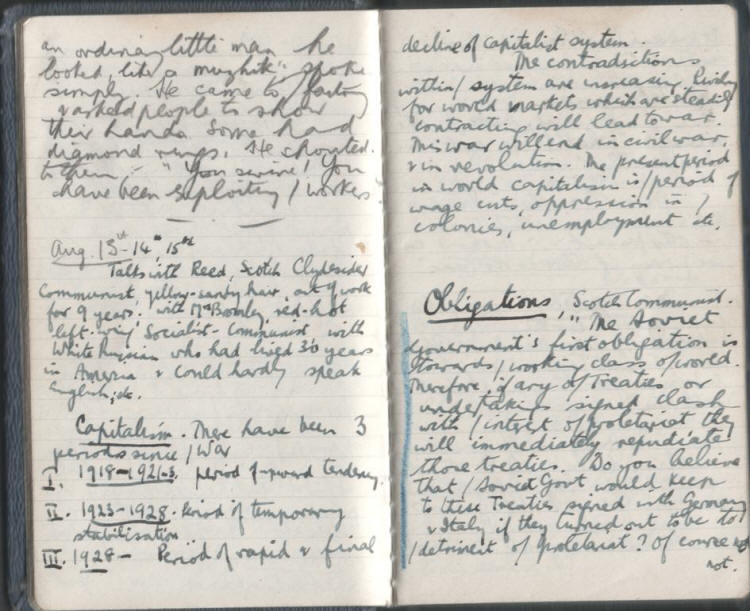 an ordinary little man he
looked like a muzhik", spoke
simply. He came to / factory
& asked people to show
their hands. Some had
diamond rings. He shouted
to them:- "You swine! You
have been exploiting / workers
Aug. 13th - 14th, 15th
Talks with Reed, Scotch Clydesider
Communist, yellow-sandy hair, out of work
for 9 years. with Mr Bromley, red-hot
left-wing Socialist-Communist with
White Russian who had lived 30 years
in America & could hardly speak
English; etc.
Capitalism. There have been 3
periods since / War
I. 1918-1921-3. period of tendency.
II. 1923-1928. Period of temporary
stabilisation
III. 1928- Period of rapid & final
decline of capitalist system.
The contradictions
within / system are increasing. Rivalry
for world markets which are steadily
contracting will lead to war.
This war will end in civil war,
& in revolution. The present period
in world capitalism is / period of
wage cuts, oppression in /
colonies, unemployment etc.
Obligations, Scotch Communist.
"The Soviet
Government's first obligation is
towards / working class of world.
Therefore, if any of Treaties or
undertakings signed clash
with / interest of proletariat they
will immediately repudiate
those treaties. Do you believe
that / Soviet Govt would keep
to these Treaties signed with Germany
& Italy if they turned out to be to
/ detriment of proletariat? Of course not
not.